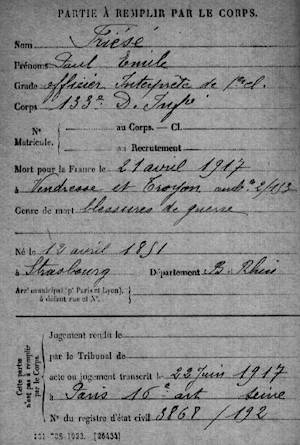 PARTIE À REMPLIR PAR LE CORPS.
Nom Friésé
Prénoms Paul Emile
Grade officier Interprète de 1re cl.
Corps 133e D. Inf.
N° Matricule. au Corps. — Cl.
au Recrutement
Mort pour la France le 21 avril 1917
à Vendresse et Troyon amb. 2/113
Genre de mort blessures de guerre
Né le 12 avril 1851
à Strasbourg Département B. Rhin
Arrt municipal (pr Paris et Lyon),
à défaut rue et N°.
Cette partie n'est pas à remplir par le Corps.
Jugement rendu le
par le Tribunal de
acte ou jugement transcrit le 22 juin 1917
à Paris 16e art Seine
N° du registre d'état civil 3868/192